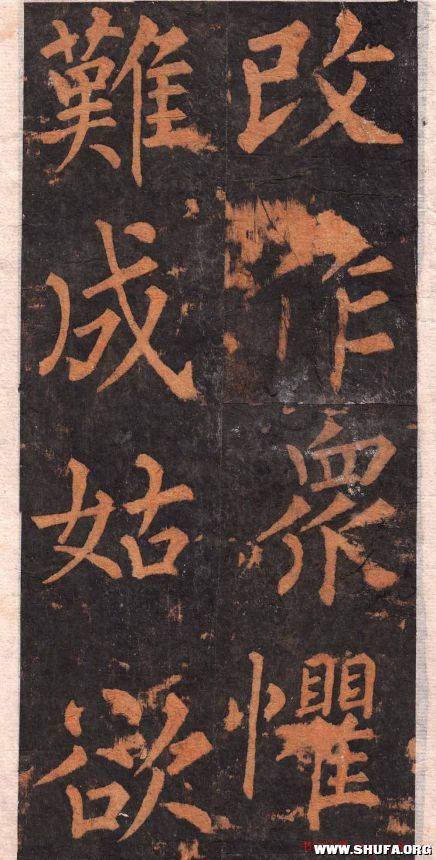 改作衆懼
難成姑欲
WWW.SHUFA.ORG